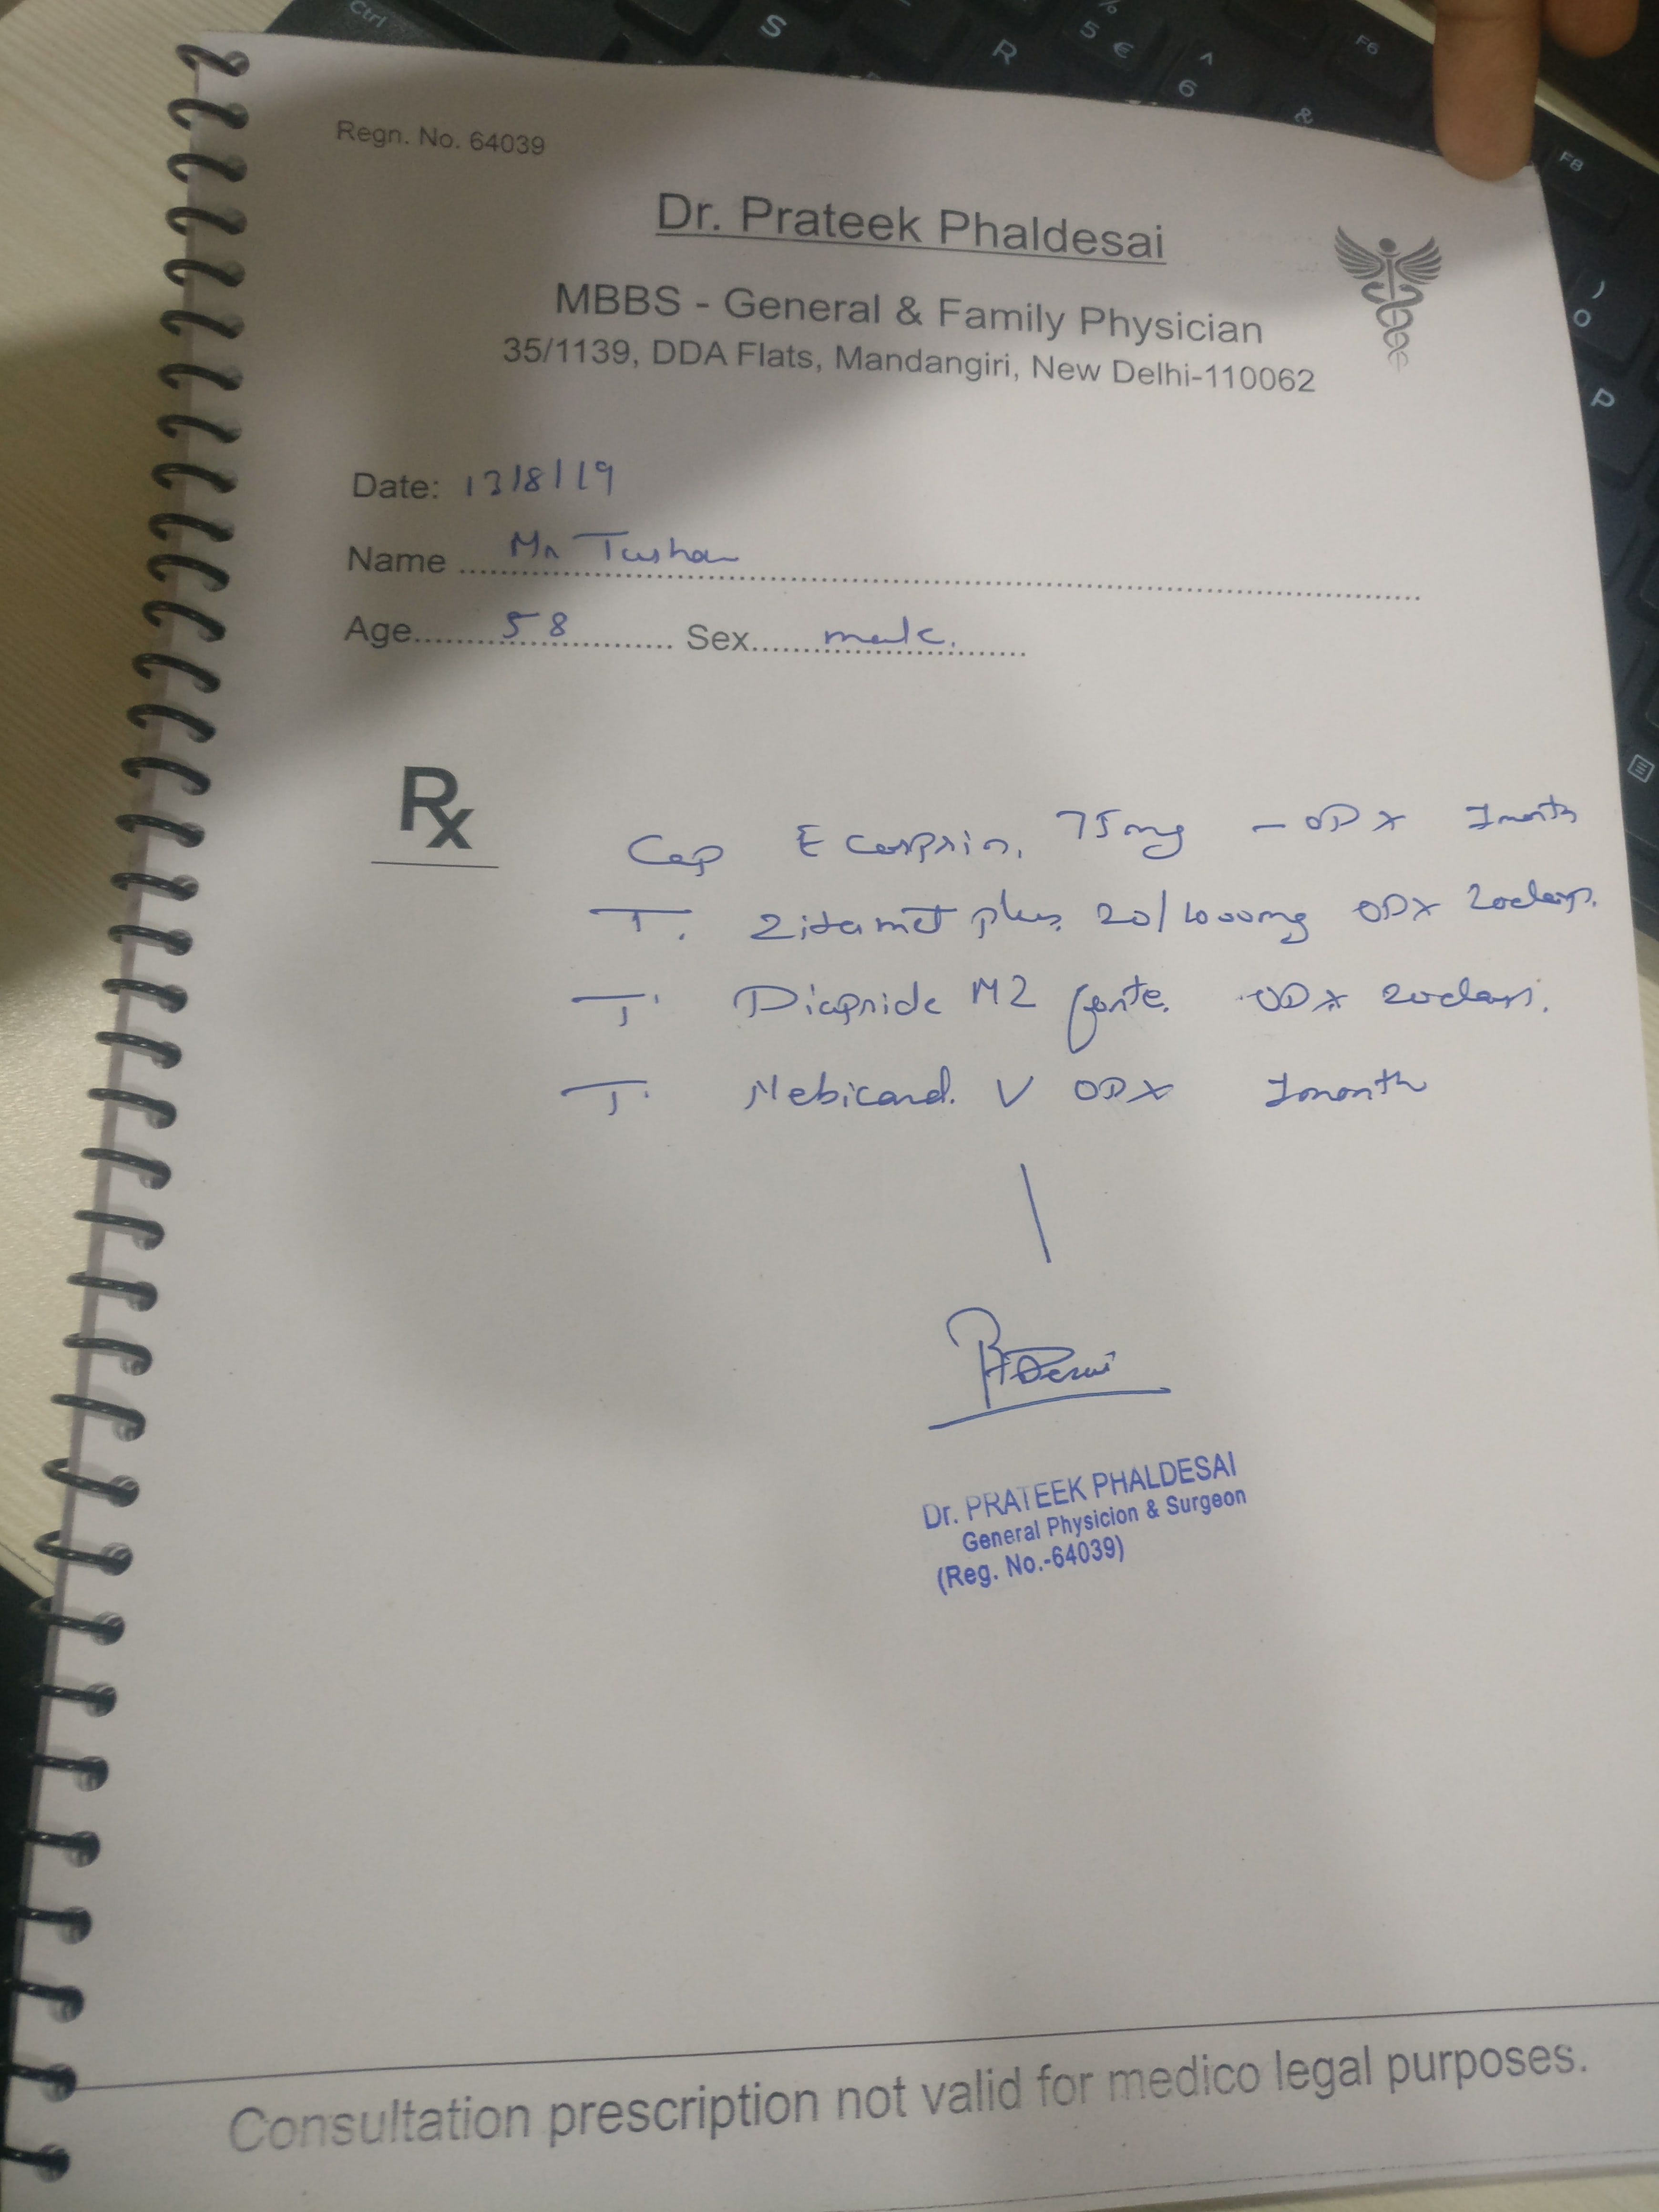 Regn. No. 64039
Dr. Prateek Phaldesai
MBBS - General & Family Physician
35/1139, DDA Flats, Mandangiri, New Delhi-110062
Date: 13/8/19
Name Mr Tushar
Age 58 Sex male.
Rx
Cap Ecosprin. 75mg - OD x 1month
T. Zitamet plus 20/1000mg OD x 20days.
T. Diapride M2 forte. OD x 20days.
T. Nebicard. V OD x 1month
Dr. PRATEEK PHALDESAI
General Physicion & Surgeon
(Reg. No.-64039)
Consultation prescription not valid for medico legal purposes.
Ctrl
S
R
% 5 €
^ 6
&
F6
F8
) 0
P